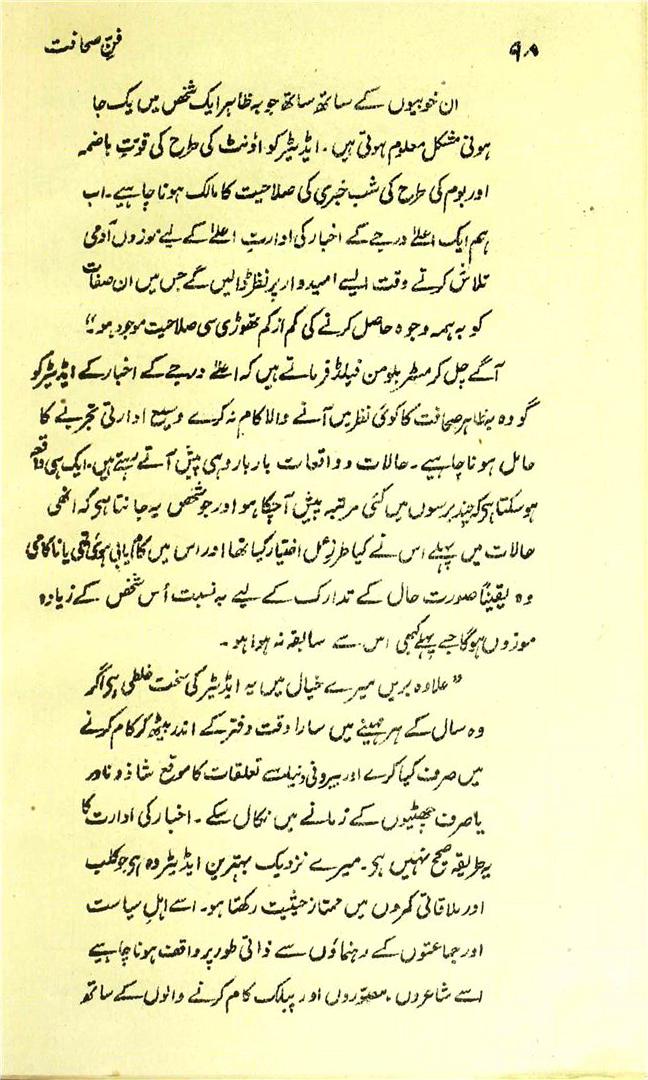 ۹۸
فنِّ صحافت
ان خوبیوں کے ساتھ ساتھ جو بہ ظاہر ایک شخص میں یک جا
ہونی مشکل معلوم ہوتی ہیں۔ ایڈیٹر کو اونٹ کی طرح کی قوّتِ ہاضمہ
اور بوم کی طرح کی شب خبری کی صلاحیت کا مالک ہونا چاہیے۔ اب
ہم ایک اعلیٰ درجے کے اخبار کی ادارتِ اعلےٰ کے لیے موزوں آدمی
تلاش کرتے وقت ایسے امیدوار پر نظر ڈالیں گے جس میں ان صفات
کو بہ ہمہ وجوہ حاصل کرنے کی کم از کم تھوڑی سی صلاحیت موجود ہو"
آگے چل کر مسٹر بلومن فیلڈ فرماتے ہیں کہ اعلےٰ درجے کے اخبار کے ایڈیٹر کو
گو وہ بہ ظاہر صحافت کا کوئی نظر میں آنے والا کام نہ کرے وسیع ادارتی تجربے کا
حامل ہونا چاہیے۔ حالات و واقعات بار بار وہی پیش آتے رہتے ہیں۔ ایک ہی واقعہ
ہو سکتا ہی کہ چند برسوں میں کئی مرتبہ پیش آ چکا ہو اور جو شخص یہ جانتا ہی کہ انھی
حالات میں پہلے اس نے کیا طرزِ عمل اختیار کیا تھا اور اس میں کام یابی ہوئی تھی یا ناکامی
وہ یقیناً صورت حال کے تدارک کے لیے بہ نسبت اُس شخص کے زیادہ
موزوں ہوگا جسے پہلے کبھی اس سے سابقہ نہ ہوا ہو۔
"علاوہ بریں میرے خیال میں یہ ایڈیٹر کی سخت غلطی ہی اگر
وہ سال کے ہر مہینے میں سارا وقت دفتر کے اندر بیٹھ کر کام کرنے
میں صرف کیا کرے اور بیرونی دنیا سے تعلقات کا موقع شاذ و نادر
یا صرف چھٹیوں کے زمانے میں نکال سکے۔ اخبار کی ادارت کا
یہ طریقہ صحیح نہیں ہی۔ میرے نزدیک بہترین ایڈیٹر وہ ہی جو کلب
اور ملاقاتی کمروں میں ممتاز حیثیت رکھتا ہو۔ اسے اہلِ سیاست
اور جماعتوں کے رہنماؤں سے ذاتی طور پر واقف ہونا چاہیے
اسے شاعروں، مصوّروں اور پبلک کام کرنے والوں کے ساتھ